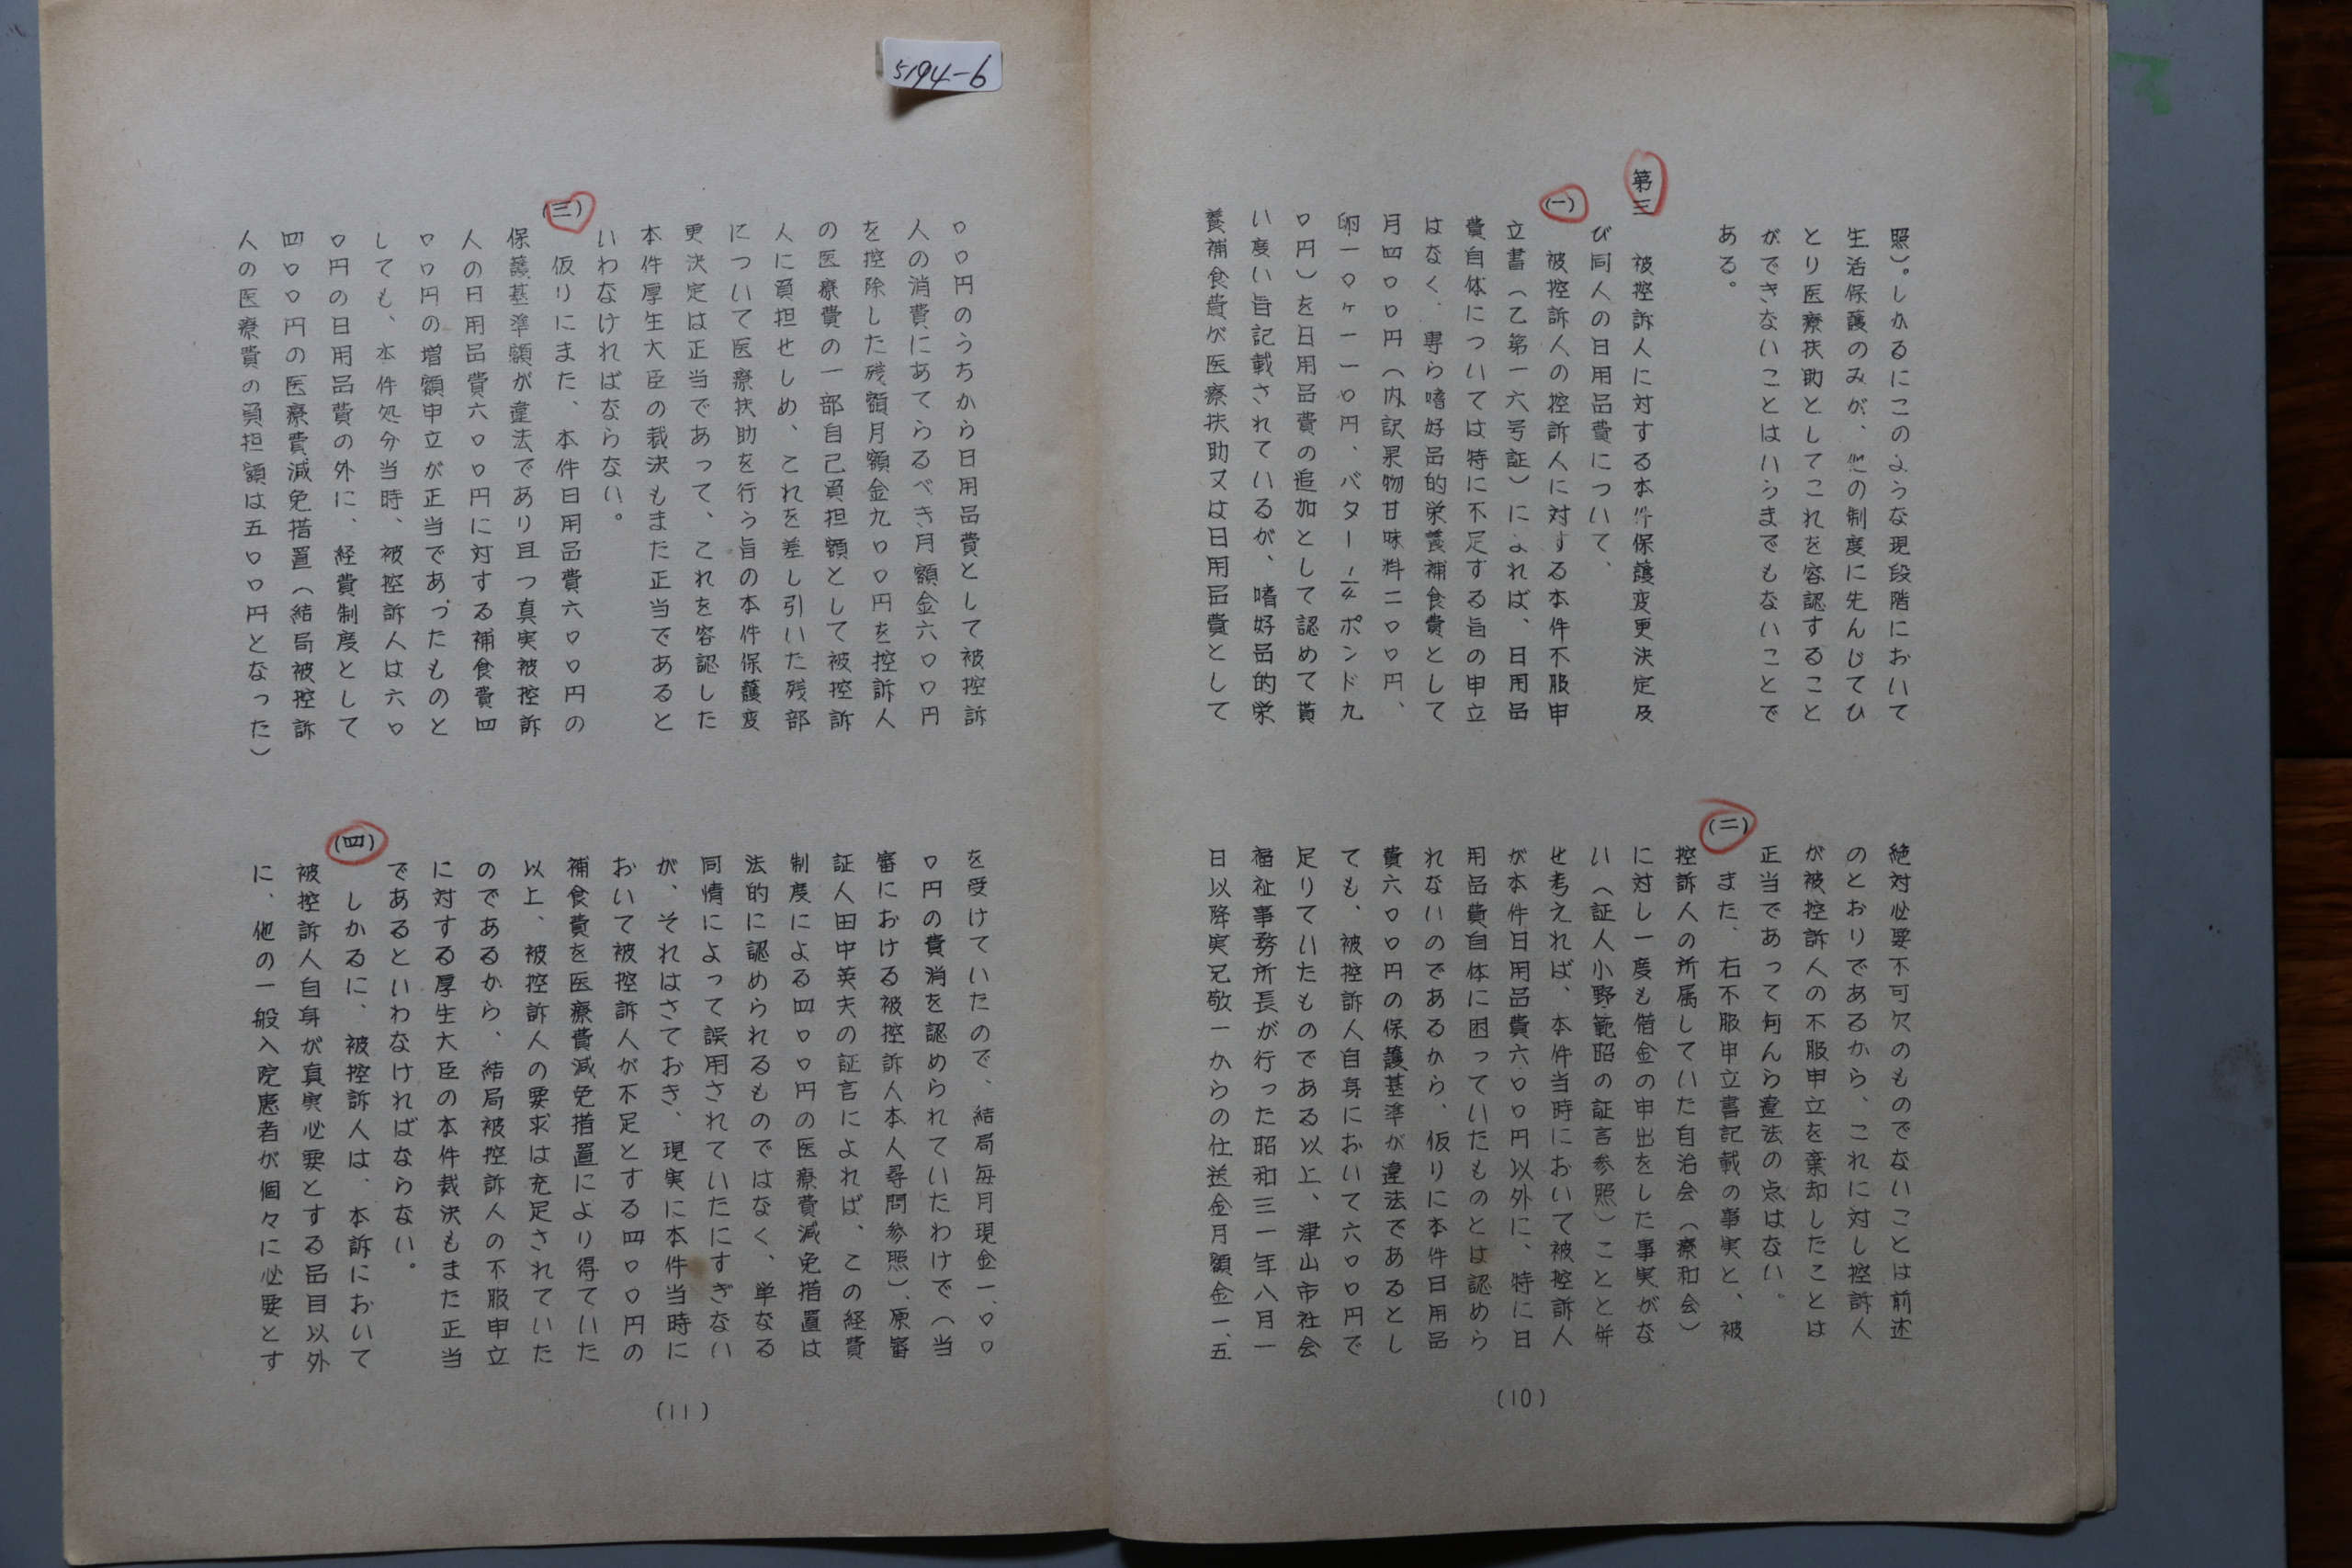 5194-6
照）。しかるにこのような現段階において
生活保護のみが、他の制度に先んじてひ
とり医療扶助としてこれを容認すること
ができないことはいうまでもないことで
ある。
第三　被控訴人に対する本件保護変更決定及
び同人の日用品費について、
(一)　被控訴人の控訴人に対する本件不服申
立書（乙第一六号証）によれば、日用品
費自体については特に不足する旨の申立
はなく、専ら嗜好品的栄養補食費として
月四〇〇円（内訳果物甘味料二〇〇円、
卵一〇ヶ一一〇円、バター1/4ポンド九
〇円）を日用品費の追加として認めて貰
い度い旨記載されているが、嗜好品的栄
養補食費が医療扶助又は日用品費として
絶対必要不可欠のものでないことは前述
のとおりであるから、これに対し控訴人
が被控訴人の不服申立を棄却したことは
正当であって何んら違法の点はない。
(二)　また、右不服申立書記載の事実と、被
控訴人の所属していた自治会（療和会）
に対し一度も借金の申出をした事実がな
い（証人小野範昭の証言参照）ことと併
せ考えれば、本件当時において被控訴人
が本件日用品費六〇〇円以外に、特に日
用品費自体に困っていたものとは認めら
れないのであるから、仮りに本件日用品
費六〇〇円の保護基準が違法であるとし
ても、被控訴人自身において六〇〇円で
足りていたものである以上、津山市社会
福祉事務所長が行った昭和三一年八月一
日以降実兄敬一からの仕送金月額金一、五
(10)
〇〇円のうちから日用品費として被控訴
人の消費にあてらるべき月額金六〇〇円
を控除した残額月額金九〇〇円を控訴人
の医療費の一部自己負担額として被控訴
人に負担せしめ、これを差し引いた残部
について医療扶助を行う旨の本件保護変
更決定は正当であって、これを容認した
本件厚生大臣の裁決もまた正当であると
いわなければならない。
(三)　仮りにまた、本件日用品費六〇〇円の
保護基準額が違法であり且つ真実被控訴
人の日用品費六〇〇円に対する補食費四
〇〇円の増額申立が正当であったものと
しても、本件処分当時、被控訴人は六〇
〇円の日用品費の外に、経費制度として
四〇〇円の医療費減免措置（結局被控訴
人の医療費の負担額は五〇〇円となった）
を受けていたので、結局毎月現金一、〇〇
〇円の費消を認められていたわけで（当
審における被控訴人本人尋問参照）、原審
証人田中英夫の証言によれば、この経費
制度による四〇〇円の医療費減免措置は
法的に認められるものではなく、単なる
同情によって誤用されていたにすぎない
が、それはさておき、現実に本件当時に
おいて被控訴人が不足とする四〇〇円の
補食費を医療費減免措置により得ていた
以上、被控訴人の要求は充足されていた
のであるから、結局被控訴人の不服申立
に対する厚生大臣の本件裁決もまた正当
であるといわなければならない。
(四)　しかるに、被控訴人は、本訴において
被控訴人自身が真実必要とする品目以外
に、他の一般入院患者が個々に必要とす
(11)